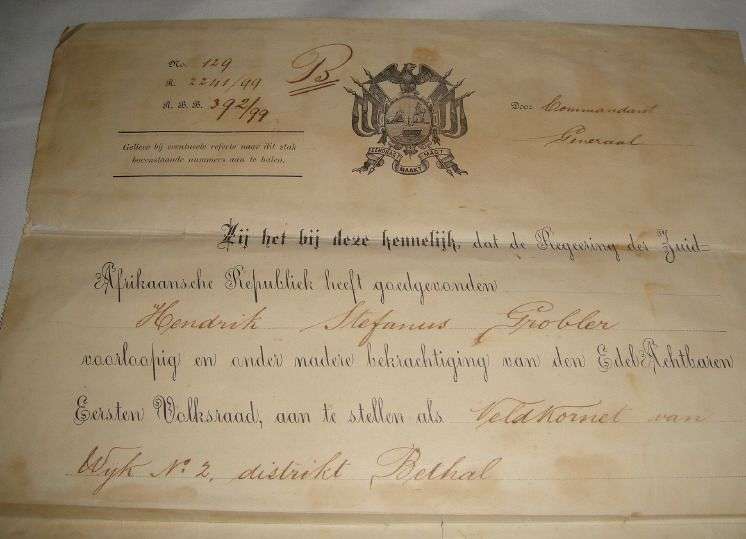 No. 129
R. 2241/99
R. B. B. 392/99
B
Door Commandant
Generaal
Gelieve bij eventuele referte naar dit stuk
bovenstaande nummers aan te halen.
EENDRAGT MAAKT MAGT
Zij het bij deze kennelijk, dat de Regeering der Zuid=
Afrikaansche Republiek heeft goedgevonden
Hendrik Stefanus Grobler
voorloopig en onder nadere bekrachtiging van den Edel Achtbaren
Eersten Volksraad, aan te stellen als Veldkornet van
Wyk No. 2, distrikt Bethal